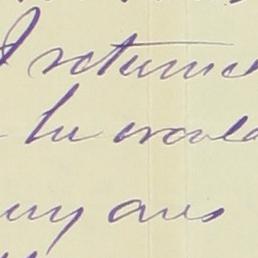 I returned
he would
my ans